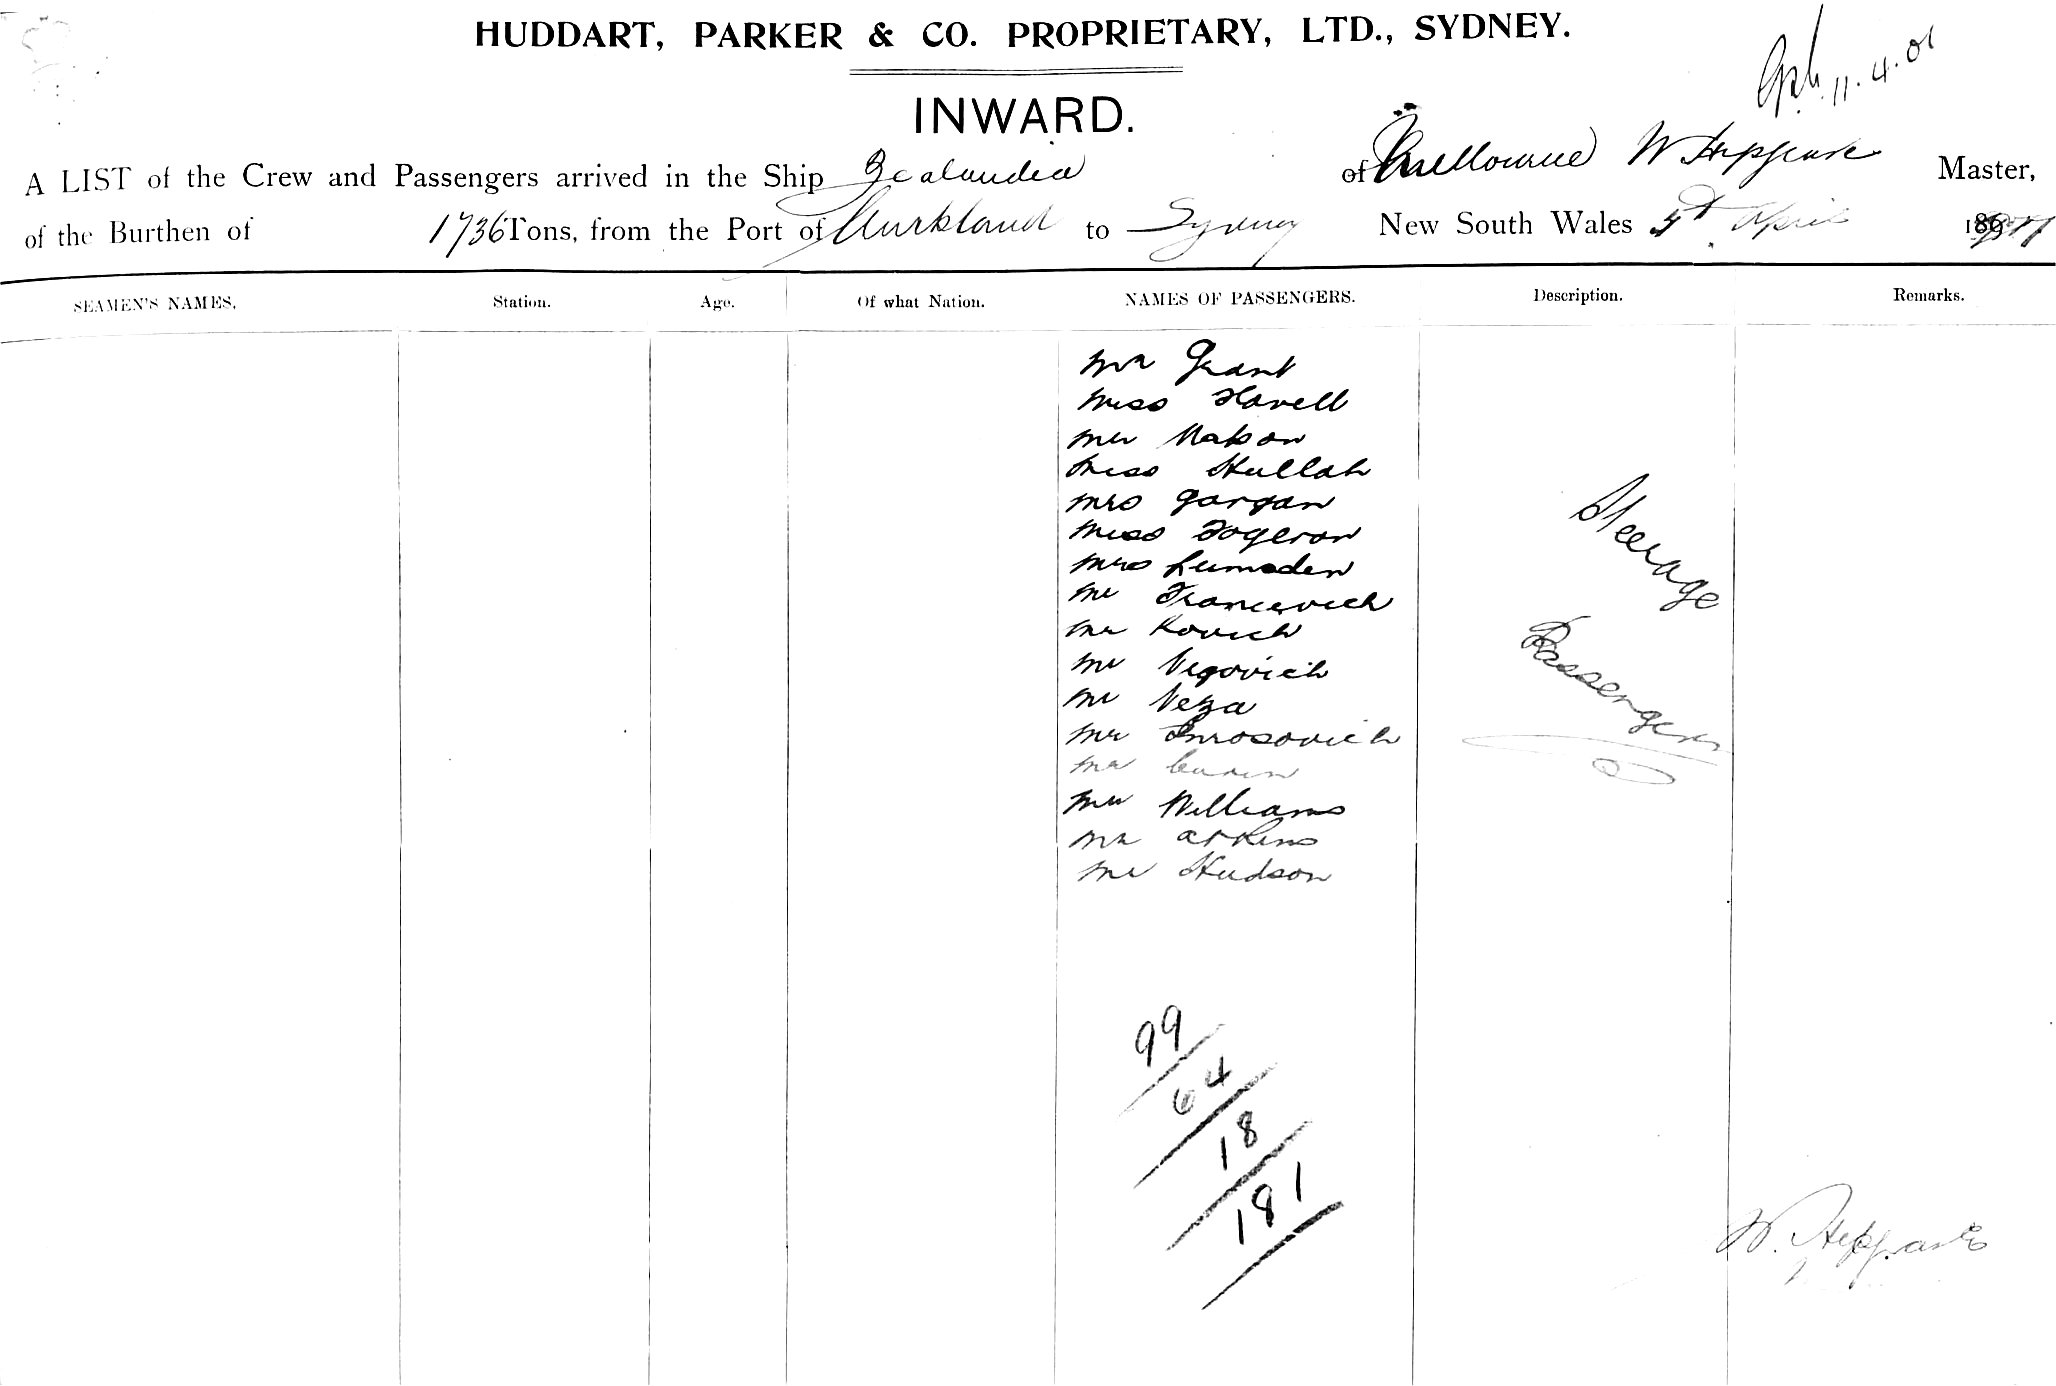 HUDDART, PARKER & CO. PROPRIETARY, LTD., SYDNEY.
11.4.01
INWARD.
A LIST of the Crew and Passengers arrived in the Ship Zealandia of Melbourne W Master,
of the Burthen of 1736 Tons, from the Port of Aurkland to Sydney New South Wales 5th April
SEAMEN'S NAMES. Station. Age. Of what Nation. NAMES OF PASSENGERS. Description. Remarks.
Mr Grant
Miss Havell
Mr
Miss Hullah
Mrs Gargan
Miss Fogeron
Mrs Lumsden
Mr Francevich
Mr Rovich
Mr Vegovich
Mr Veza
Mr
Mr
Mr Williams
Mr Atkins
Mr Hudson
Steerage
Passengers
99
64
18
181
W.